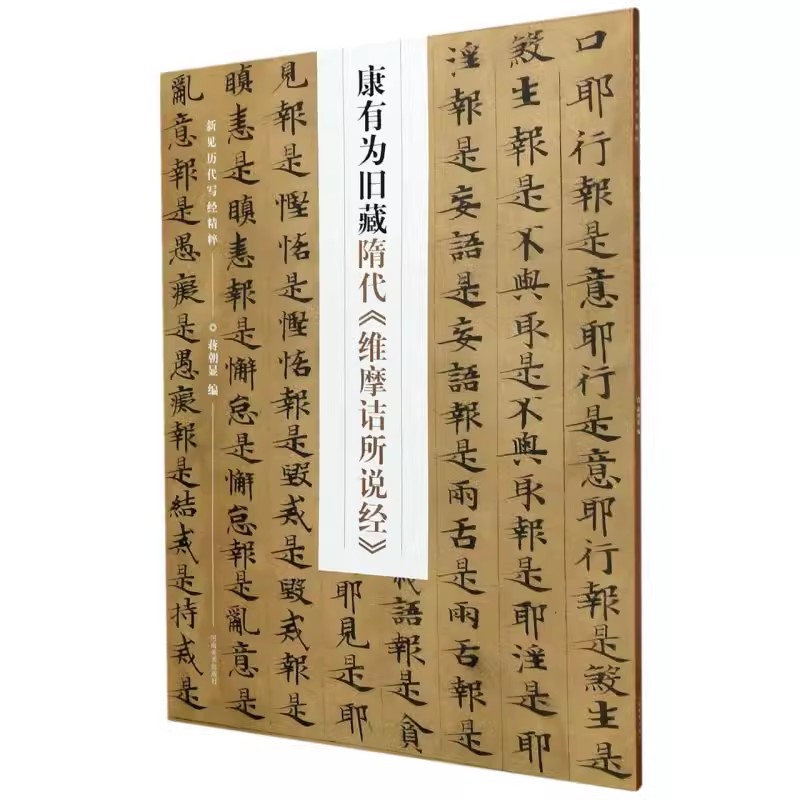 口耶行報是意耶行是意耶行報是煞生是
煞生報是不與取是不與取報是耶淫是耶
淫報是妄語是妄語報是兩舌是兩舌報是
語報是貪
耶見是耶
康有为旧藏隋代《维摩诘所说经》
見報是慳悋是慳悋報是毀戒是毀戒報是
瞋恚是瞋恚報是懈怠是懈怠報是亂意是
新见历代写经精粹
蒋朝显 编
河南美术出版社
亂意報是愚癡是愚癡報是結戒是持戒是